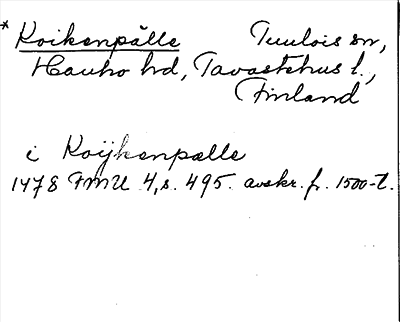 * Koikenpälle Tuulois sn,
Hauho hd, Tavastehus l.,
Finland
i Koijkenpælle
1478 FMU 4, s. 495. avskr. fr. 1500-t.